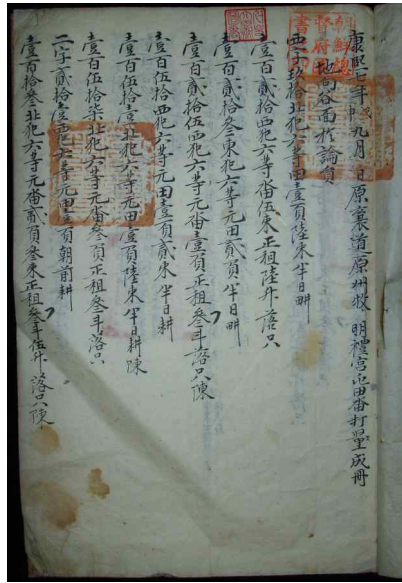 朝鮮總督府圖書之印
康熙七年九月 日原襄道原州牧 明禮宮屯田畓打量成冊
地向谷面於論員
玖拾北犯六等田壹負陸束半日畊
壹百貳拾西犯六等畓伍束正租陸升落只
壹百貳拾叁東犯六等元田貳負半日畊
壹百貳拾伍西犯六等元畓壹負正租叁斗落只陳
壹百伍拾西犯六等元田壹負貳束半日耕
壹百伍拾壹北犯六等元田壹負陸束半日耕陳
壹百伍拾柒北犯六等元畓叁負正租叁斗落只
二字貳拾壹西犯六等元田壹負朝前耕
壹百拾叁北犯六等元畓貳負叁束正租叁斗伍升落只陳